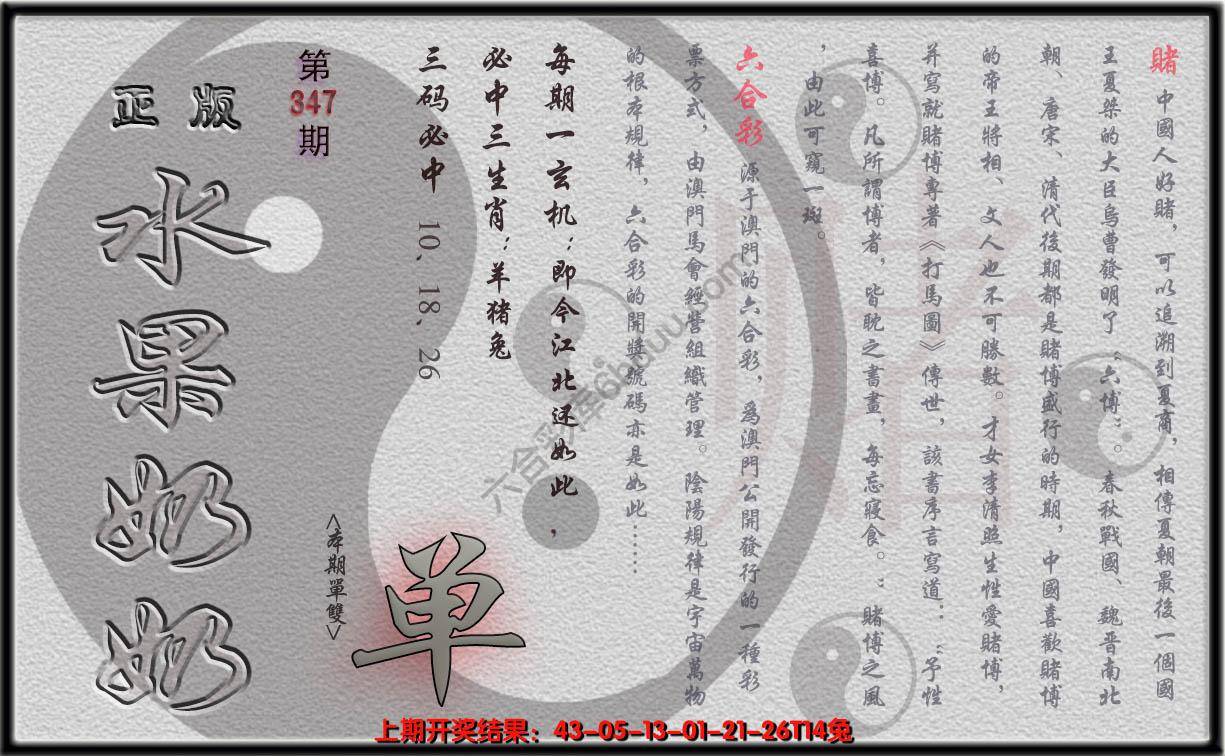 賭 中國人好賭，可以追溯到夏商，相傳夏朝最後一個國
王夏桀的大臣烏曹發明了“六博”。春秋戰國、魏晋南北
朝、唐宋、清代後期都是賭博盛行的時期，中國喜歡賭博
的帝王將相、文人也不可勝數。才女李清照生性愛賭博，
并寫就賭博專著《打馬圖》傳世，該書序言寫道：“予性
喜博。凡所謂博者，皆耽之書畫，每忘寢食。”賭博之風
，由此可窺一斑。
六合彩 源于澳門的六合彩，爲澳門公開發行的一種彩
票方式，由澳門馬會經營組織管理。陰陽規律是宇宙萬物
的根本規律，六合彩的開獎號碼亦是如此……
每期一玄机：即今江北还如此，
必中三生肖：羊猪兔
三码必中 10、18、26
第347期
正版
水果奶奶
<本期單雙>
单
賭
六合彩库6huuu.com
上期开奖结果：43-05-13-01-21-26T14兔